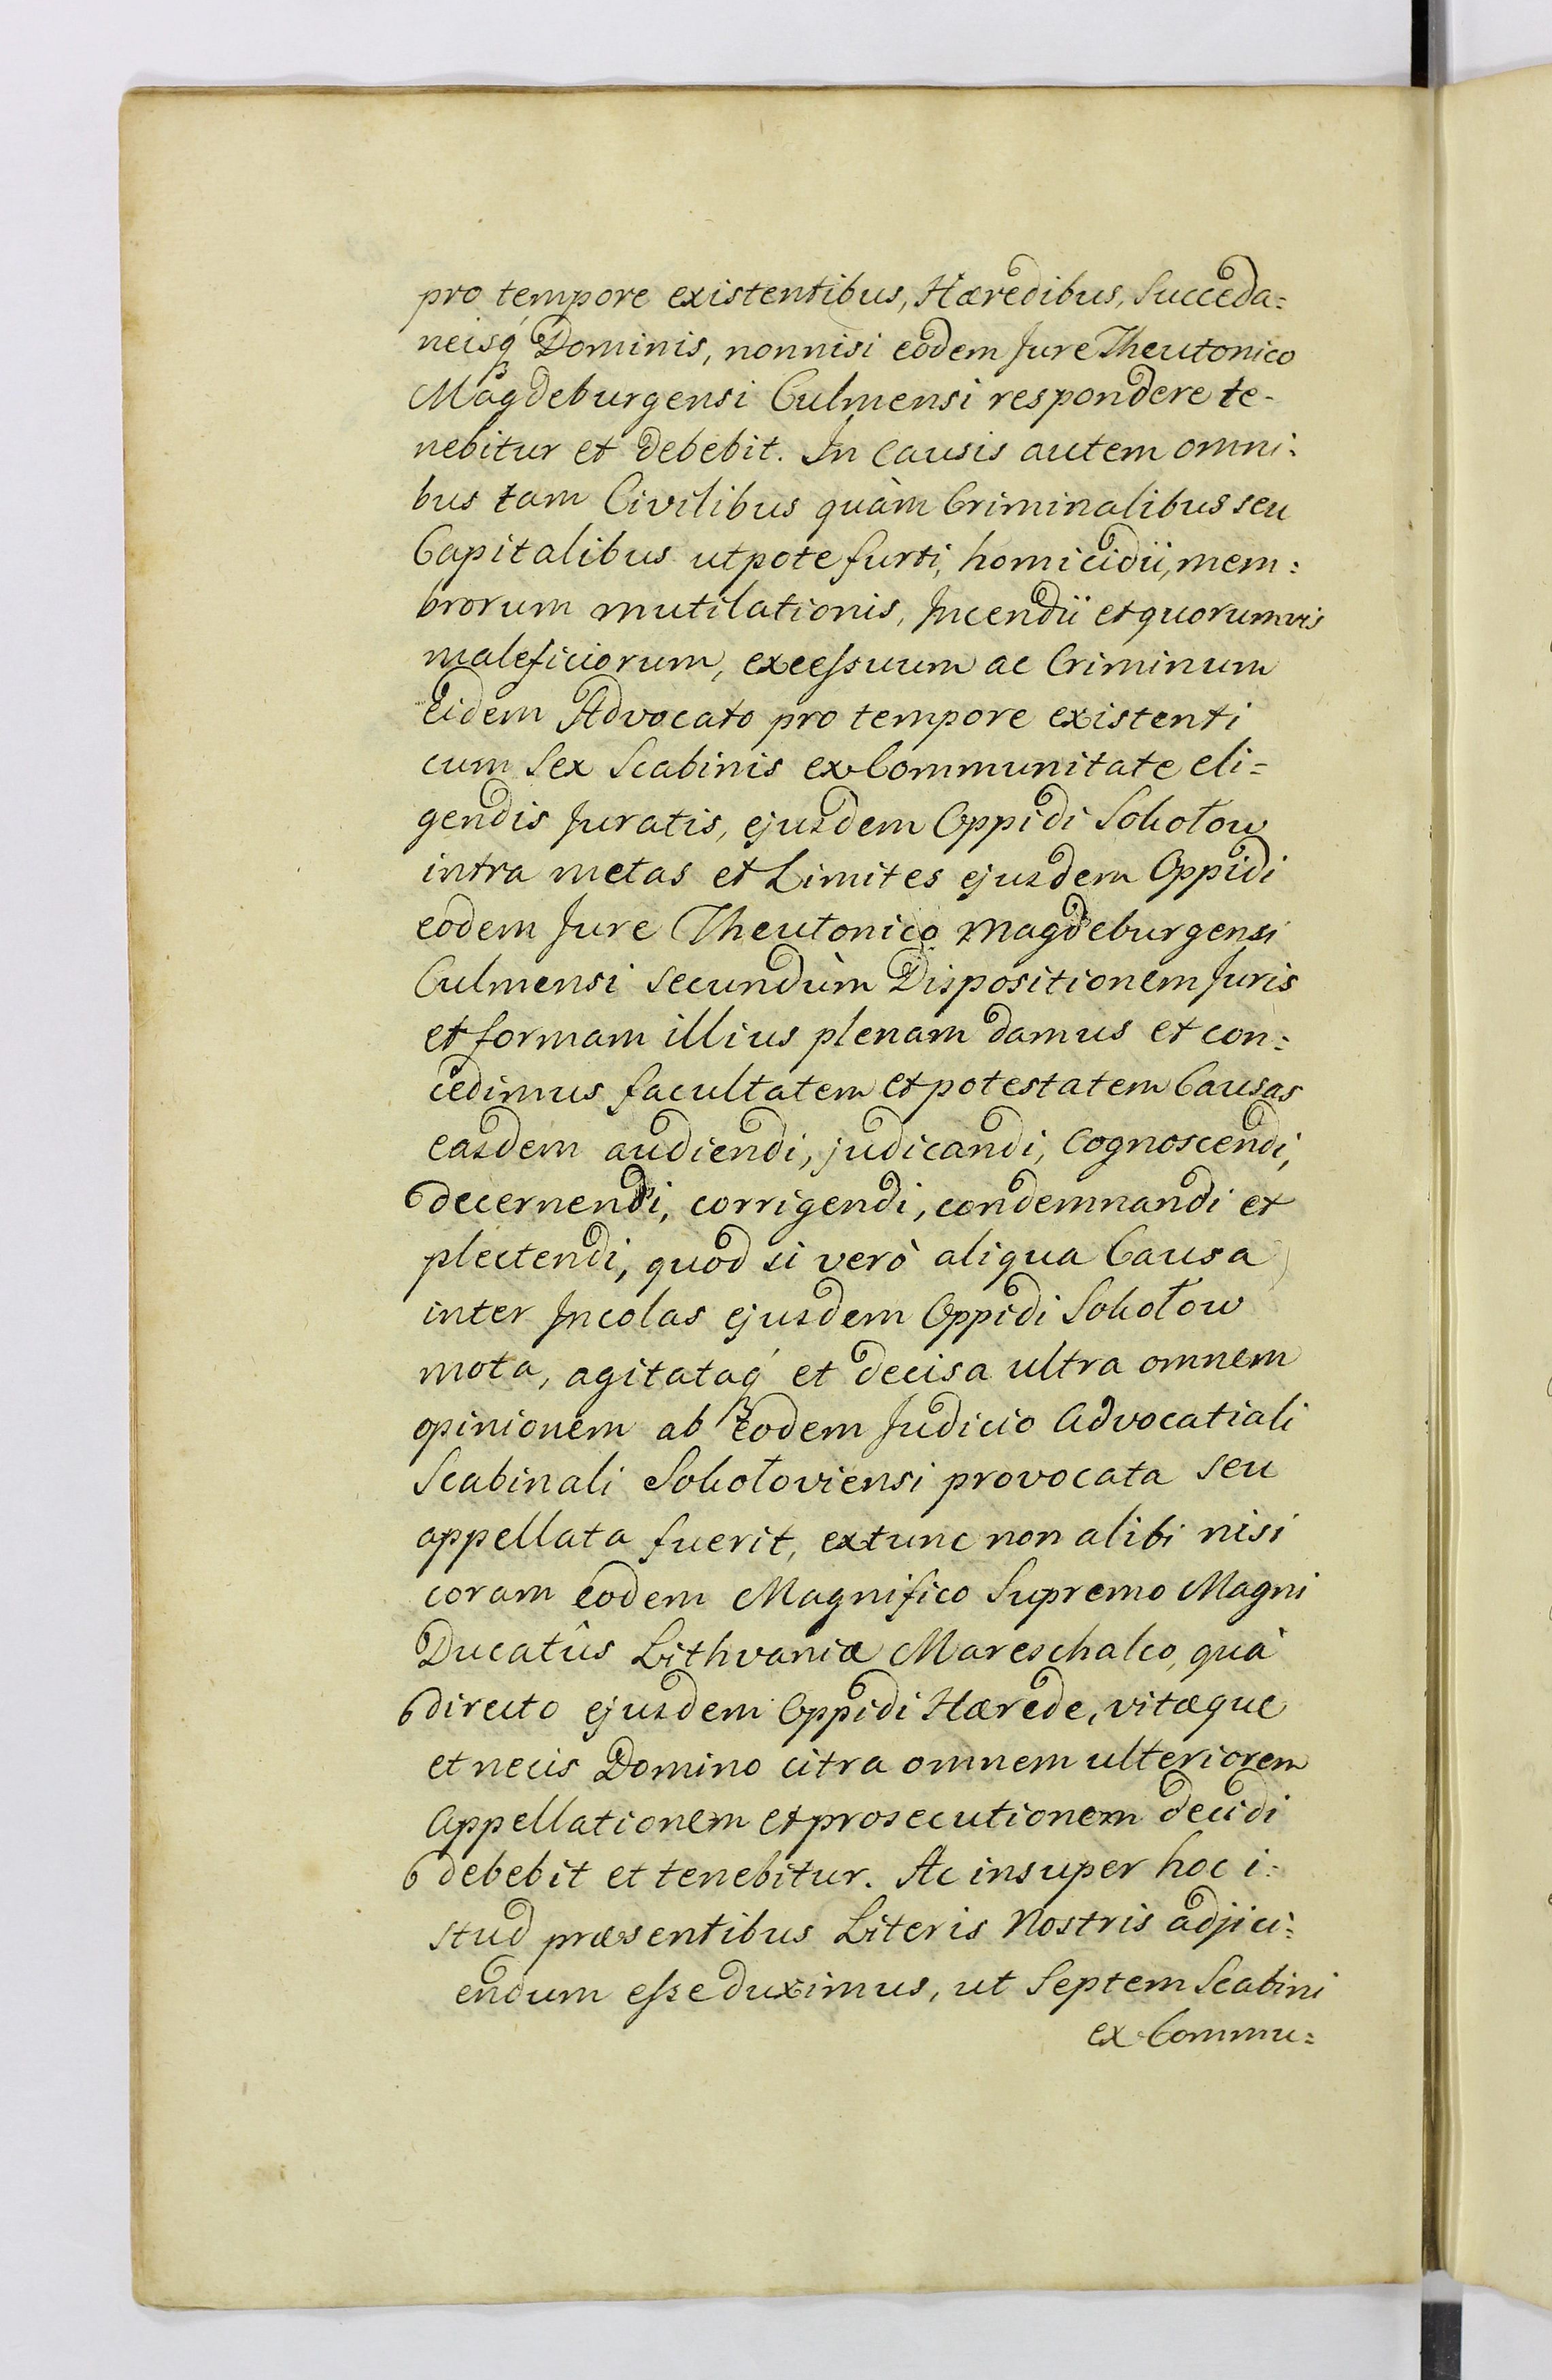 pro tempore existentibus, Hæredibus, Succeda=
neisq́ Dominis, nonnisi eodem Jure Theutonico
Magdeburgensi Culmensi respondere te-
nebitur et debebit. In causis autem omni:
bus tam Civilibus quàm Criminalibus seu
Capitalibus utpote furti, homicidii, mem:
brorum mutilationis, Incendii et quorumvis
maleficiorum, excessuum ac Criminum
eidem Advocato pro tempore existenti
cum Sex Scabinis ex Communitate eli=
gendis Juratis, ejusdem Oppidi Sokołow
intra metas et Limites ejusdem Oppidi
eodem Jure Theutonico Magdeburgensi
Culmensi secundùm Dispositionem Juris
et formam illius plenam damus et con:
cedimus facultatem et potestatem Causas
easdem audiendi, judicandi, cognoscendi,
decernendi, corrigendi, condemnandi et
plectendi, quod si verò aliqua Causa
inter Incolas ejusdem Oppidi Sokołow
mota, agitataq́ et decisa ultra omnem
opinionem ab eodem Judicio Advocatiali
Scabinali Sokołoviensi provocata seu
appellata fuerit, extunc non alibi nisi
coram eodem Magnifico Supremo Magni
Ducatûs Lithvaniæ Mareschalco, quà
directo ejusdem Oppidi Hærede, vitæque
et necis Domino citra omnem ulteriorem
Appellationem et prosecutionem decidi
debebit et tenebitur. Ac insuper hoc i:
stud præsentibus Literis Nostris adjici:
endum esse duximus, ut Septem Scabini
ex Commu: